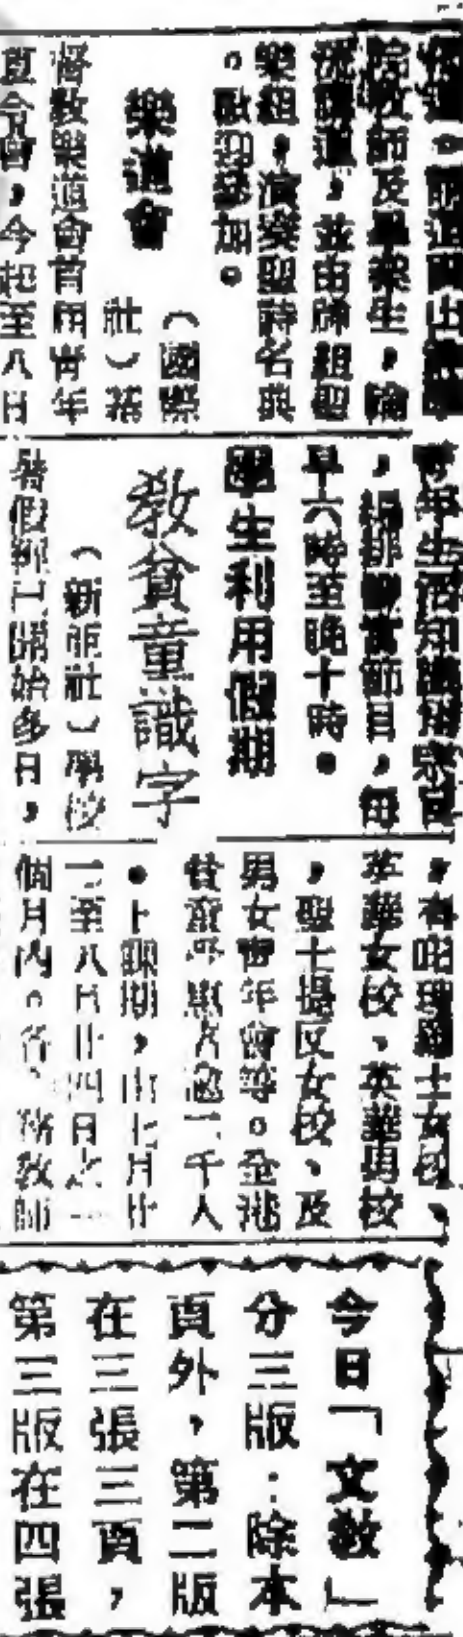 院教師及畢業生，論
道，並由師組聖
樂組，演奏聖詩名典
。歡迎參加。
樂道會
（國際
社）基
督教樂道會首屆青年
夏令會，今起至八日
目，每
早六時至晚十時。
學生利用假期
教貧童識字
（新龍社）學校
暑假經已開始多日，
英華女校、英華男校
，聖士提反女校、及
男女青年會等。全港
貧童受惠者逾二千人
。上課期，由七月廿
一至八月廿四日之一
個月內。各 教師
今日「文教」
分三版：除本
頁外，第二版
在三張三頁，
第三版在四張